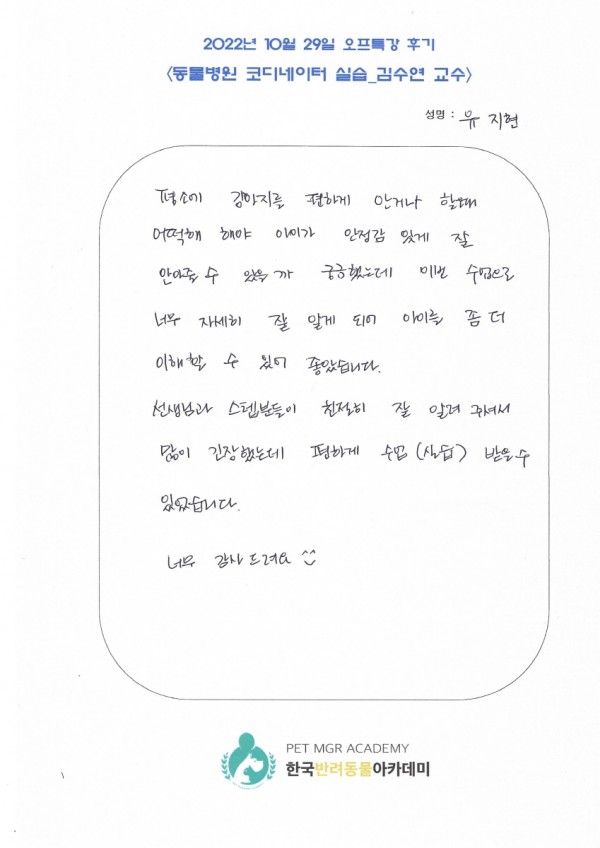 2022년 10월 29일 오프특강 후기
<동물병원 코디네이터 실습_김수연 교수>
성명 : 유 지현
평소에 강아지를 편하게 안거나 할때
어떡해 해야 아이가 안정감 있게 잘
안아줄 수 있을 까 궁금했는데 이번 수업으로
너무 자세히 잘 알게 되어 아이를 좀 더
이해할 수 있어 좋았습니다.
선생님과 스텝분들이 친절히 잘 알려 주셔서
많이 긴장했는데 편하게 수업 (실습) 받을 수
있었습니다.
너무 감사 드려요 ^^
PET MGR ACADEMY
한국반려동물아카데미